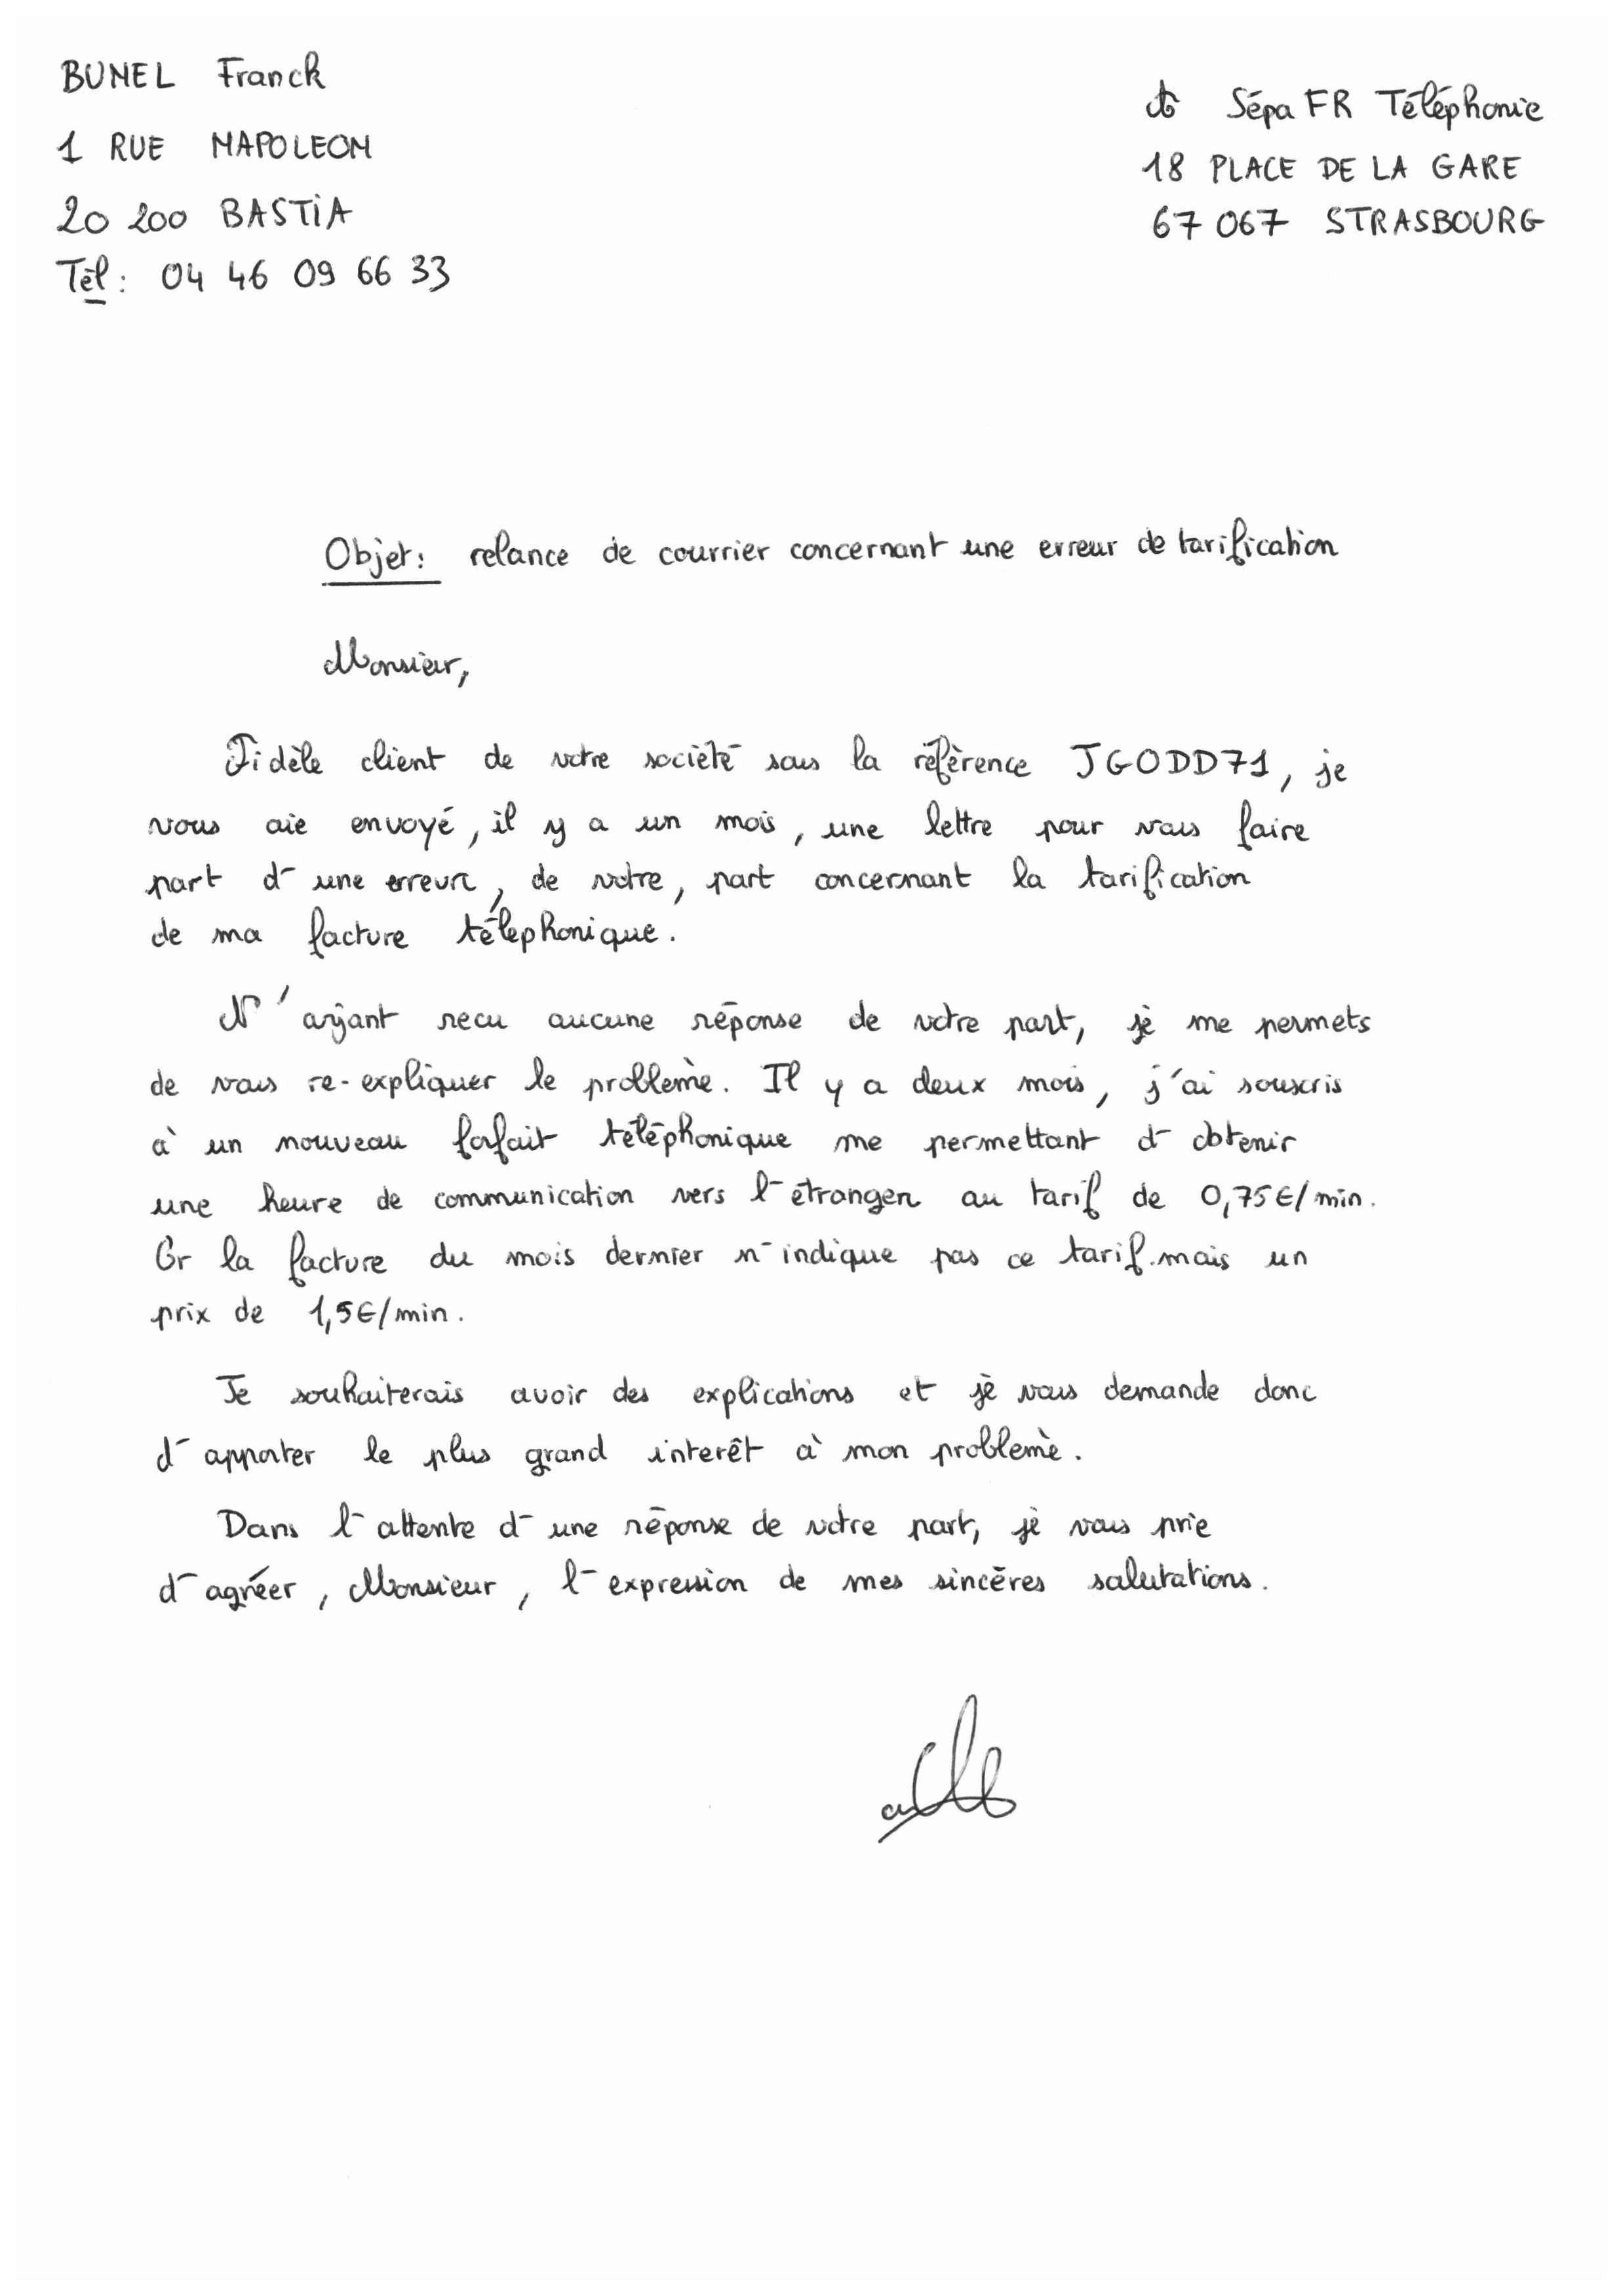 BUNEL Franck
1 RUE NAPOLEON
20 200 BASTiA
Tél : 04 46 09 66 33
à Sépa FR Téléphonie
18 PLACE DE LA GARE
67 067 STRASBOURG
Objet : relance de courrier concernant une erreur de tarification
Monsieur,
Fidèle client de votre société sous la référence JGODD71, je
vous aie envoyé, il y a un mois, une lettre pour vous faire
part d'une erreur, de votre, part concernant la tarification
de ma facture téléphonique.
N'ayant recu aucune réponse de votre part, je me permets
de vous re-expliquer le problème. Il y a deux mois, j'ai souscris
à un nouveau forfait téléphonique me permettant d'obtenir
une heure de communication vers l'étranger au tarif de 0,75€/min.
Or la facture du mois dernier n'indique pas ce tarif.mais un
prix de 1,5€/min.
Je souhaiterais avoir des explications et je vous demande donc
d'apporter le plus grand interêt à mon problème.
Dans l'attente d'une réponse de votre part, je vous prie
d'agréer, Monsieur, l'expression de mes sincères salutations.